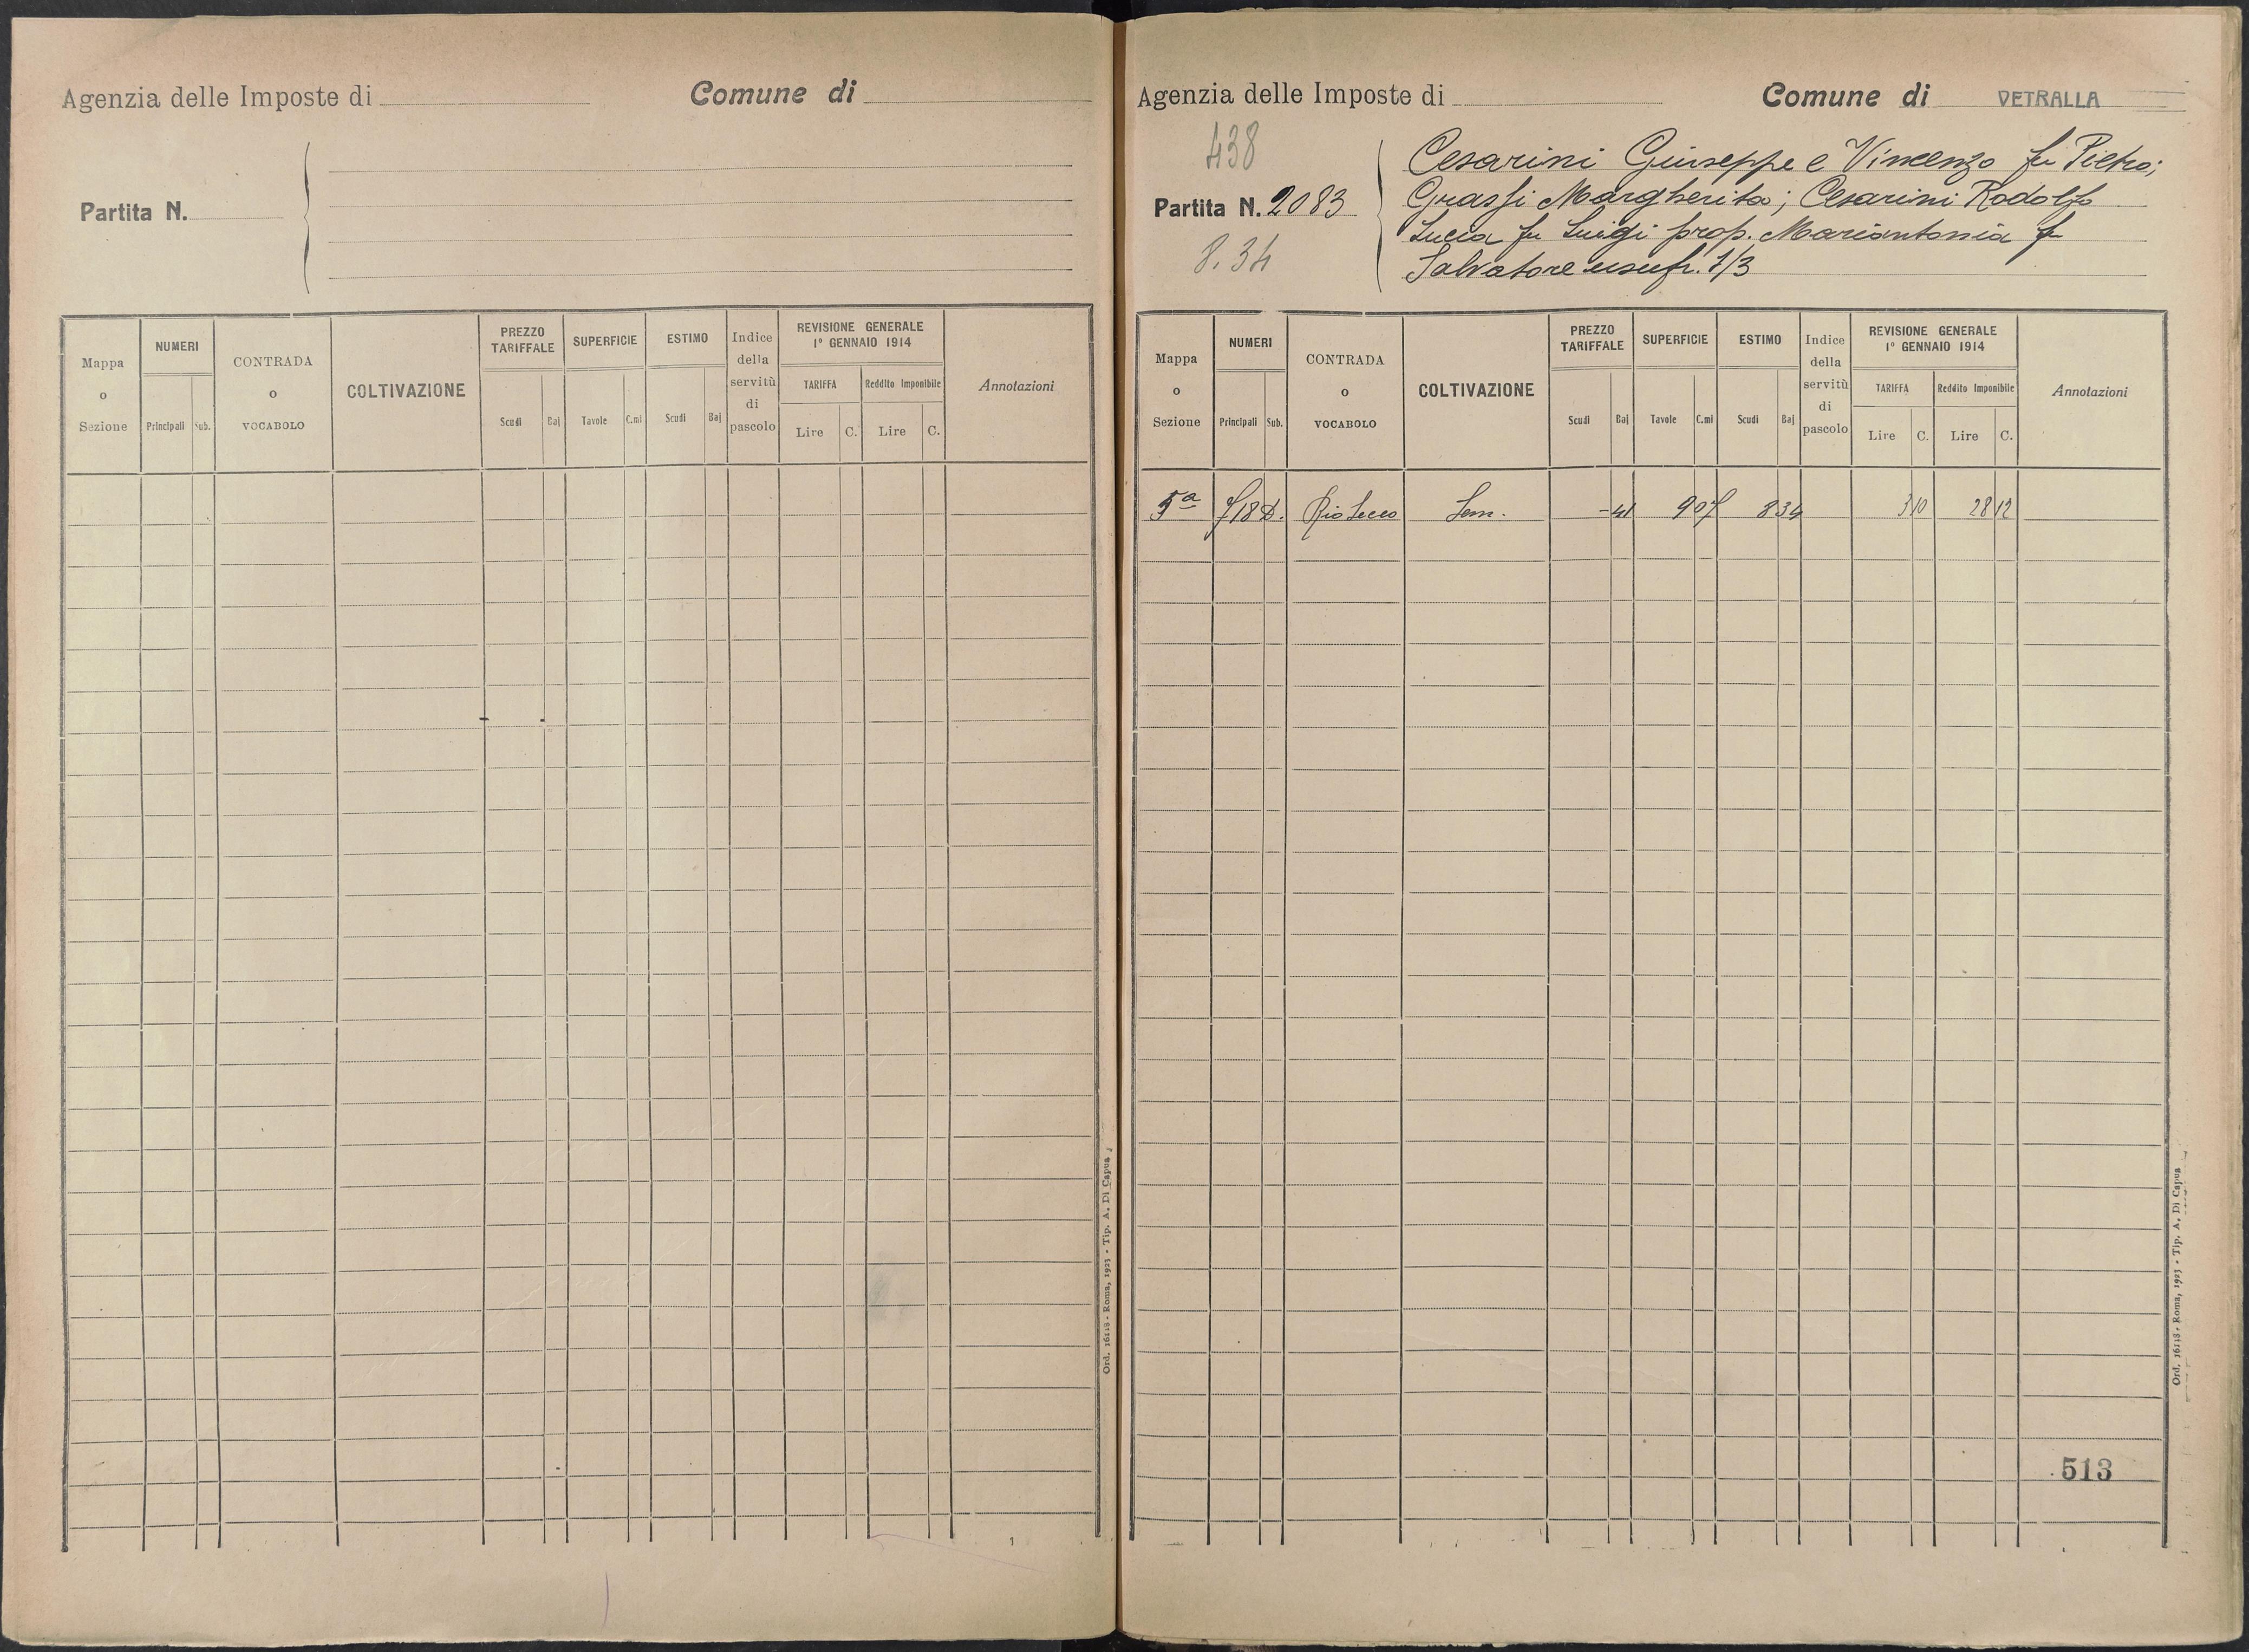 Agenzia delle Imposte di
Comune di
Partita N.
Mappa o Sezione
NUMERI
Principali Sub.
CONTRADA o VOCABOLO
COLTIVAZIONE
PREZZO TARIFFALE
Scudi Baj
SUPERFICIE
Tavole C.mi
ESTIMO
Scudi Baj
Indice della servitù di pascolo
REVISIONE GENERALE 1° GENNAIO 1914
TARIFFA
Lire C.
Reddito Imponibile
Lire C.
Annotazioni
Ord. 16118 - Roma, 1923 - Tip. A. Di Capua
1
Agenzia delle Imposte di
Comune di VETRALLA
438
Partita N. 2083
8.34
Cesarini Giuseppe e Vincenzo fu Pietro;
Grassi Margherita; Cesarini Rodolfo
Lucia fu Luigi prop. Mariantonia f
Salvatore usufr. 1/3
Mappa o Sezione
NUMERI
Principali Sub.
CONTRADA o VOCABOLO
COLTIVAZIONE
PREZZO TARIFFALE
Scudi Baj
SUPERFICIE
Tavole C.mi
ESTIMO
Scudi Baj
Indice della servitù di pascolo
REVISIONE GENERALE 1° GENNAIO 1914
TARIFFA
Lire C.
Reddito Imponibile
Lire C.
Annotazioni
5ª Rio Secco Sem. 9 07 8 34 3 10 28 12
513
Ord. 16118 - Roma, 1923 - Tip. A. Di Capua